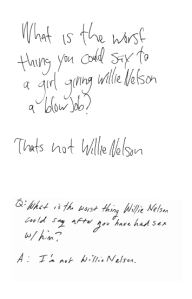 What is the worst
thing you could say to
a girl giving Willie Nelson
a blow Job?
Thats not Willie Nelson
Q: What is the worst thing Willie Nelson
could say after you have had sex
w/ him?
A: I'm not Willie Nelson.